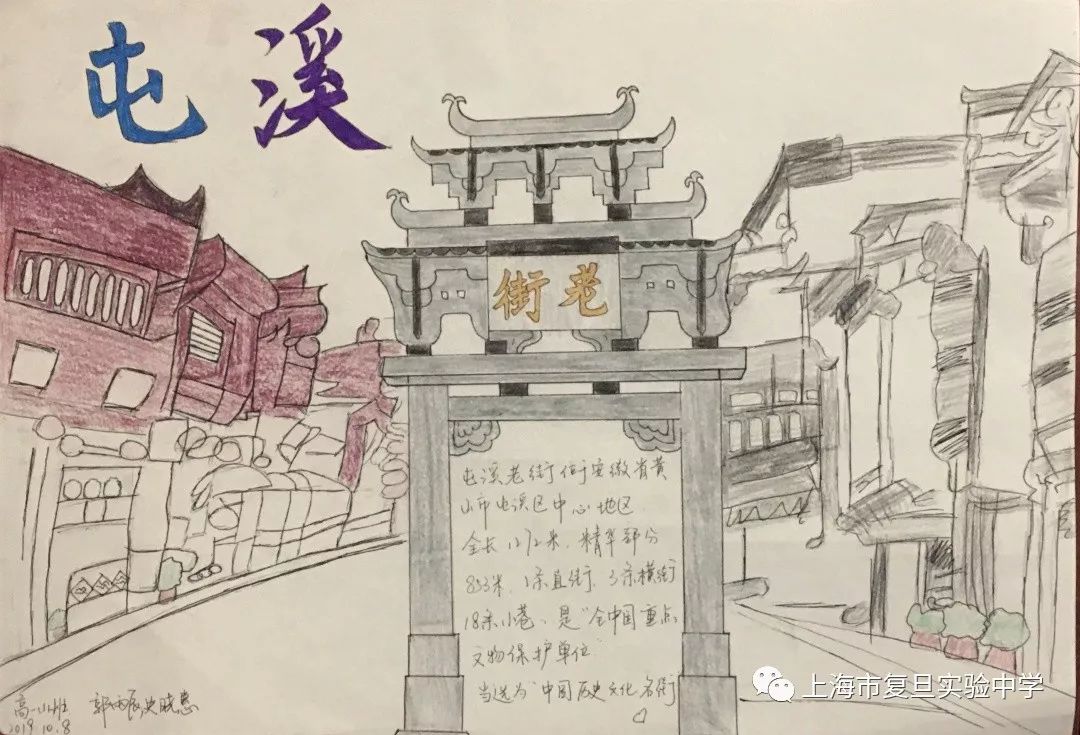 屯溪
老街
屯溪老街位于安徽省黄
山市屯溪区中心地区.
全长1272米. 精华部分
853米. 1条直街. 3条横街
18条小巷、是"全中国重点
文物保护单位"
当选为"中国历史文化名街
高一 班
2019.10.8
上海市复旦实验中学